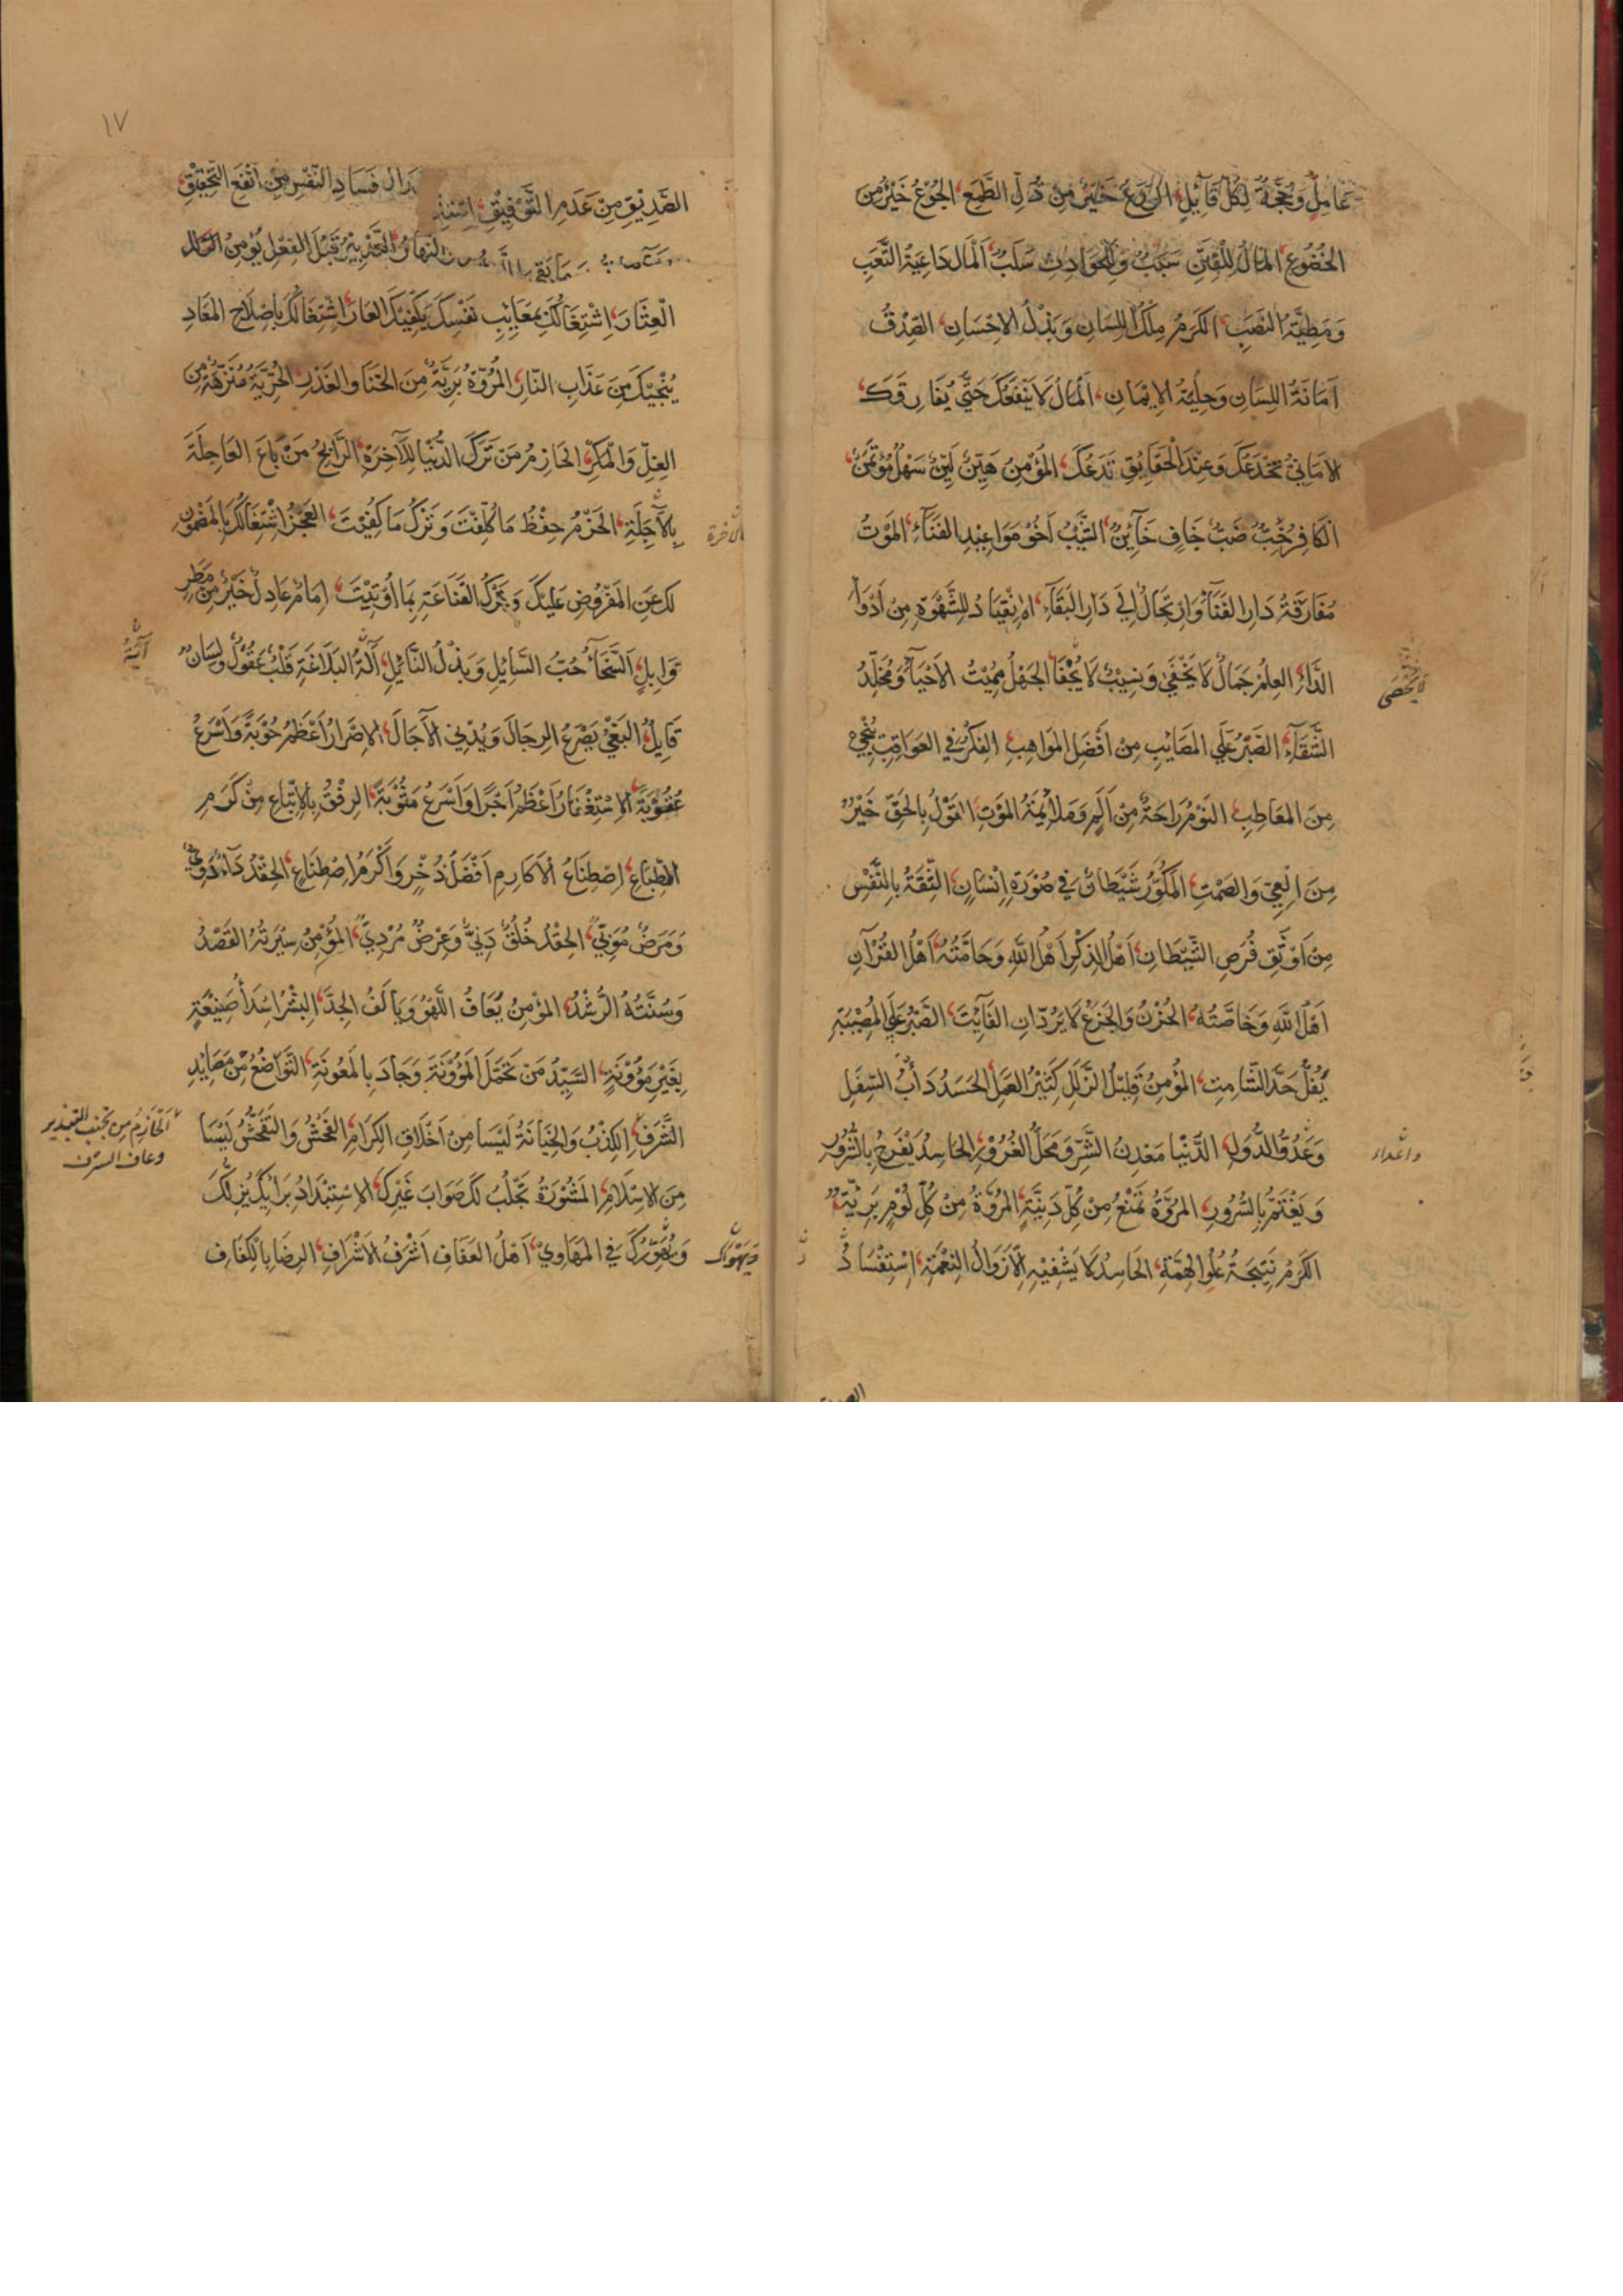 عَامِلٌ وَحُجَّةٌ لِكُلِّ قَآئِلٍ، الوَرَعُ خَيْرٌ مِنْ ذُلِّ الطَّمَعِ، الجُوْعُ خَيْرٌ مِنَ
الخُضُوعِ، المَالُ لِلْفِتَنِ سَبَبٌ وَلِلْحَوَادِثِ سَلَبٌ، اَلْمَال دَاعِيَةُ التَّعَبِ
وَمَطِيَّةُ النَّصَبِ، الكَرَمُ مِلْكُ اللِّسَانِ وَبَذْلُ الاِحْسَانِ، الصِّدْقُ
اَمَانَةُ اللِّسَانِ وَحِلْيَةُ الاِيْمَانِ، اَلْمَالُ لَا يَنْفَعُكَ حَتَّى يُفَارِقَكَ،
الاَمَانِيُّ تَخْدَعُكَ وَعِنْدَ الْحَقَايِقِ تَدَعُكَ، المُؤْمِنُ هَيِّنٌ لَيِّنٌ سَهْلٌ مُؤْتَمَنٌ،
الكَافِرُ خَبٌّ ضَبٌّ جَافٍ خَآئِنٌ، الشَّيْبُ اَخُوْ مَوَاعِيْدِ الفَنَآءِ، المَوْتُ
مُفَارَقَةُ دَارِ الفَنَآءِ وَارْتِحَالٌ اِلَى دَارِ البَقَآءِ، الاِنْقِيَادُ لِلشَّهْوَةِ مِنْ اَدْوَا
الدَّآءِ، العِلْمُ جَمَالٌ لَا يَخْفَى وَنَسِيْبٌ لَا يُجْفَا، الجَهْلُ مُمِيْتُ الاَحْيَآءِ وَمُخَلِّدُ
لَا يُحْصَى
الشَّقَآءِ، الصَّبْرُ عَلَى المَصَائِبِ مِنْ اَفْضَلِ المَوَاهِبِ، الفِكْرُ فِي العَوَاقِبِ يُنْجِي
مِنَ المَعَاطِبِ، النَّوْمُ رَاحَةٌ مِنْ اَلَمٍ وَمُلَائِمَةُ المَوْتِ، القَوْلُ بِالحَقِّ خَيْرٌ
مِنَ العِيِّ وَالصَّمْتِ، المَكُوْرُ شَيْطَانٌ فِي صُوْرَةِ اِنْسَانٍ، الثِّقَةُ بِالنَّفْسِ
مِنْ اَوْثَقِ فُرَصِ الشَّيْطَانِ، اَهْلُ الذِّكْرِ اَهْلُ اللهِ وَحَامَّتُهُ، اَهْلُ القُرْآنِ
اَهْلُ اللهِ وَخَاصَّتُهُ، الحُزْنُ وَالجَزَعُ لَا يَرُدَّانِ الفَآئِتَ، الصَّبْرُ عَلَى المُصِيْبَةِ
يَفُلُّ حَدَّ الشَّامِتِ، المُؤْمِنُ قَلِيْلُ الزَّلَلِ كَثِيْرُ العَمَلِ، الحَسَدُ دَأْبُ السِّفَلِ
وَعَدُوُّ الدُّوَلِ، الدُّنْيَا مَعْدِنُ الشَّرِّ وَمَحَلُّ الغُرُوْرِ، الحَاسِدُ يَفْرَحُ بِالشُّرُوْرِ
واعداء
وَيَغْتَمُّ بِالسُّرُورِ، المُرُوَّةُ تَمْنَعُ مِنْ كُلِّ دَنِيَّةٍ، المُرُوَّةُ مِنْ كُلِّ لُؤْمٍ بَرِيَّةٌ،
الكَرَمُ نَتِيجَةُ عُلُوِّ الهِمَّةِ، الحَاسِدُ لَا يَشْفِيْهِ اِلَّا زَوَالُ النِّعْمَةِ، اسْتِفْسَادُ
١٧
الصَّدِيْقِ مِنْ عَدَمِ التَّوْفِيْقِ، فَسَادِ النَّفْسِ مِنْ اَنْفَعِ التَّحْقِيْقِ،
التَّدْبِيْرُ قَبْلَ الفِعْلِ يُؤْمِنُ
الْعِثَارَ، اِشْتِغَالُكَ بِمَعَايِبِ نَفْسِكَ يَكْفِيْكَ العَارَ، اشْتِغَالُكَ بِاِصْلَاحِ المَعَادِ
يُنْجِيْكَ مِنْ عَذَابِ النَّارِ، المُرُوَّةُ بَرِيَّةٌ مِنَ الخَنَا وَالغَدْرِ، الحُرِّيَّةُ مُنَزَّهَةٌ مِنَ
الغِلِّ وَالْمَكْرِ، الحَازِمُ مَنْ تَرَكَ الدُّنْيَا لِلْآخِرَةِ، الرَّابِحُ مَنْ بَاعَ العَاجِلَةَ
بِالآجِلَةِ، الحَزْمُ حِفْظُ مَا كُلِّفْتَ وَتَرْكُ مَا كُفِيْتَ، العَجْزُ اشْتِغَالُكَ بِالمَضْمُوْنِ
بالآخرة
لَكَ عَنِ المَفْرُوْضِ عَلَيْكَ وَتَرْكُ القَنَاعَةِ بِمَا اُوْتِيْتَ، اِمَامٌ عَادِلٌ خَيْرٌ مِنْ مَطَرٍ
وَابِلٍ، اَلسَّخَآءُ حُبُّ السَّايِلِ وَبَذْلُ النَّائِلِ، آلَةُ البَلَاغَةِ قَلْبٌ عَقُوْلٌ وَلِسَانٌ
آيَةُ
قَايِلٌ، البَغْيُ يَصْرَعُ الرِّجَالَ وَيُدْنِي الآجَالَ، الاِصْرَارُ اَعْظَمُ حُوْبَةً وَاَسْرَعُ
عُقُوْبَةً، الاِسْتِغْفَارُ اَعْظَمُ اَجْرًا وَاَسْرَعُ مَثُوْبَةً، الرِّفْقُ بِالاَتْبَاعِ مِنْ كَرَمِ
الطِّبَاعِ، اِصْطِنَاعُ الاَكَارِمِ اَفْضَلُ ذُخْرٍ وَاَكْرَمُ اصْطِنَاعٍ، الحِقْدُ دَآءٌ دَوِيٌّ
وَمَرَضٌ مُوْبِيٌّ، الحِقْدُ خُلُقٌ دَنِيٌّ وَعَرَضٌ مُرْدِيٌّ، المُؤْمِنُ سِيْرَتُهُ القَصْدُ
وَسُنَّتُهُ الرُّشْدُ، المُؤْمِنُ يَعَافُ اللَّهْوَ وَيَأْلَفُ الجِدَّ، البِشْرُ اِسْدَأُ صَنِيْعَةٍ
بِغَيْرِ مَؤُوْنَةٍ، السَّيِّدُ مَنْ تَحَمَّلَ المَؤُوْنَةَ وَجَادَ بِالمَعُوْنَةِ، التَّوَاضُعُ مِنْ مَصَايِدِ
الشَّرَفِ، الكِذْبُ وَالخِيَانَةُ لَيْسَا مِنْ اَخْلَاقِ الكِرَامِ، الفُحْشُ وَالتَّفَحُّشُ لَيْسَا
اَلحَازِمُ مَن تجنب التبذير
وعاف السرف
مِنَ الاِسْلَامِ، المَشْوَرَةُ تَجْلِبُ لَكَ صَوَابَ غَيْرِكَ، الاِسْتِبْدَادُ بِرَأْيِكَ يُزِلُّكَ
وَيُهَوِّرُكَ فِي المَهَاوِيْ، اَهْلُ العَفَافِ اَشْرَفُ الاَشْرَافِ، الرِّضَا بِالْكَفَافِ